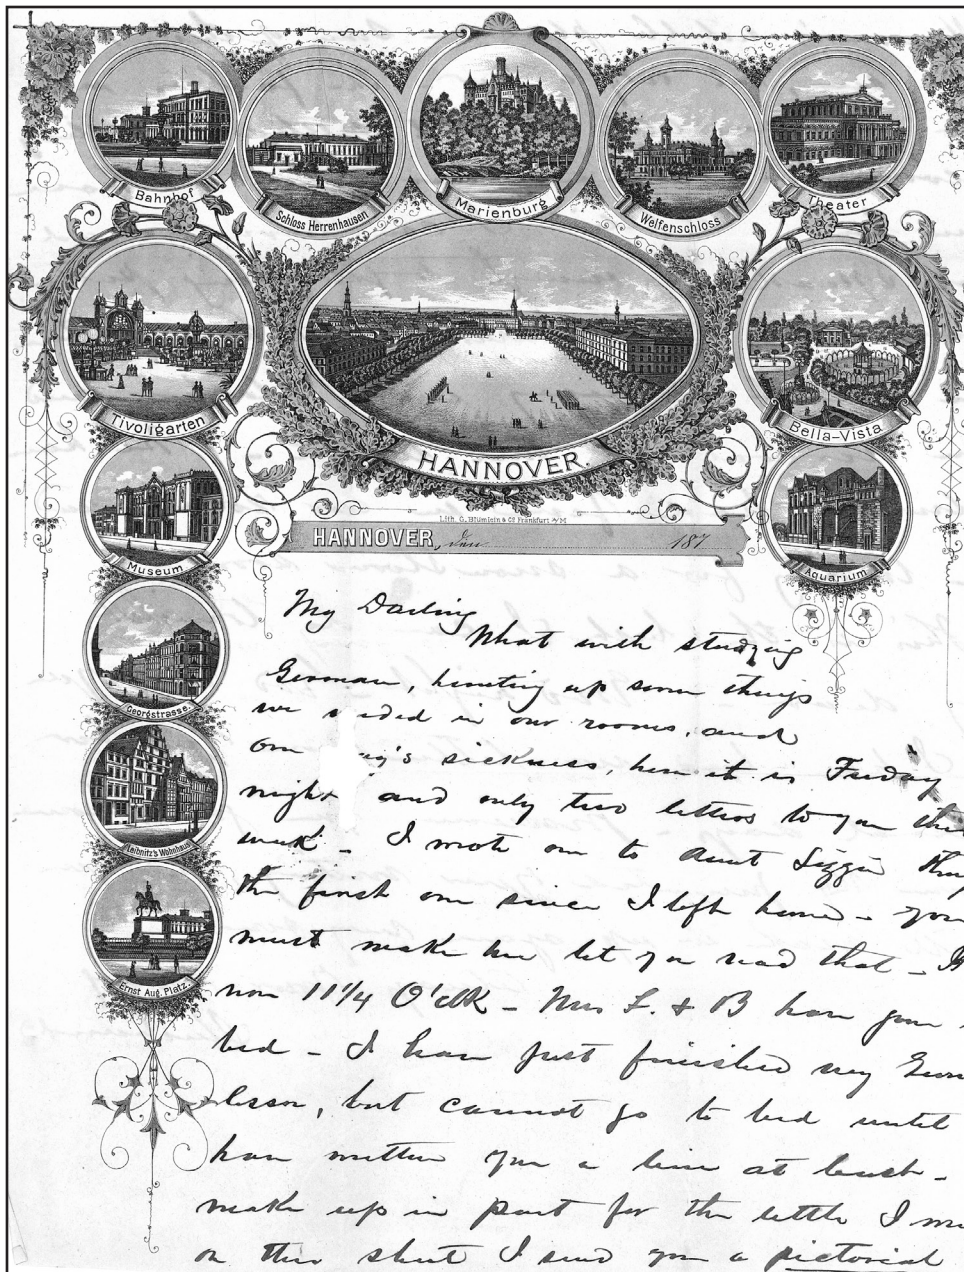 Bahnhof
Schloss Herrenhausen
Marienburg
Welfenschloss
Theater
Tivoligarten
HANNOVER.
Bella-Vista
Museum
Aquarium
Lith. G. Blümlein & Co Frankfurt a/M
HANNOVER, den 187
Georgstrasse.
Leibnitz's Wohnhaus
Ernst Aug. Platz.
My Darling
What with studying
German, hunting up some things
we needed in our rooms, and
our sickness, here it is Friday
night and only two letters to you this
week - I wrote one to Aunt Lizzie
the first one since I left home - you
must make her let you read that -
now 11 1/4 O'clk - Mrs L. & B have gone
bed - I have just finished my
lesson, but cannot go to bed until
have written you a line at least -
make up in part for the little I
on this sheet I send you a pictorial